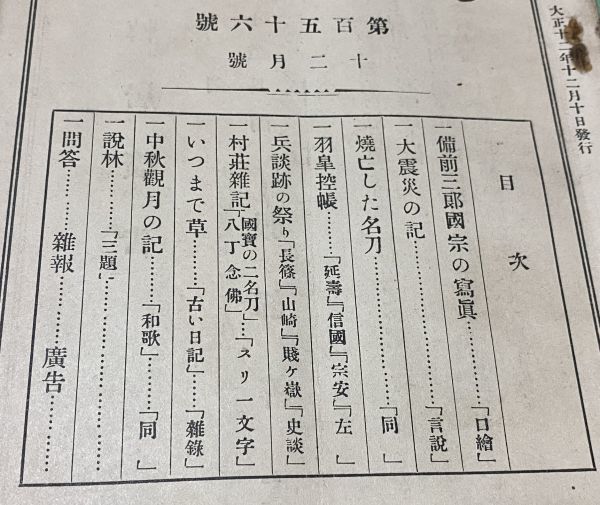 大正十二年十二月十日發行
第百五十六號
十二月號
目次
一備前三郎國宗の寫眞………「口繪」
一大震災の記………「言説」
一燒亡した名刀………「同」
一羽皐控帳………「延壽」「信國」「宗安」「左」
一兵談跡の祭り「長篠」「山崎」「賤ケ嶽」「史談」
一村莊雜記「國寶の二名刀」「八丁念佛」…「スリ一文字」
一いつまで草………「古い日記」……「雜錄」
一中秋觀月の記………「和歌」………「同」
一說林………「三題」………
一問答………雜報………廣告………